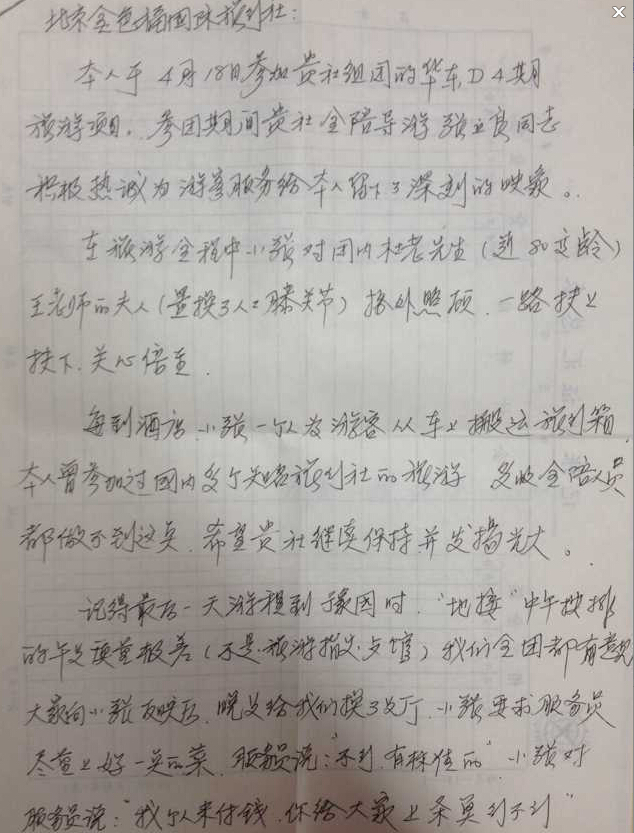 北京金色橄国际旅行社：
本人于4月18日参加贵社组团的华东D4期
旅游项目。参团期间贵社全陪导游张立良同志
积极热诚为游客服务给本人留下了深刻的映象。
在旅游全程中小张对团内杜老先生（近80高龄）
王老师的夫人（置换了人工膝关节）格外照顾．一路扶上
扶下．关心倍至．
每到酒店．小张一个人为游客从车上搬运旅行箱．
本人曾参加过国内多个知名旅行社的旅游 多数全陪人员
都做不到这点．希望贵社继续保持并发扬光大。
记得最后一天游程到豫园时．"地接"中午按排
的午餐质量极差（不是旅游指定点馆）我们全团都有意见
大家向小张反映后．晚餐给我们换了餐厅．小张要求服务员
尽量上好一点的菜．服务员说："不行．有标准的"小张对
服务员说："我个人来付钱．你给大家上条鱼行不行"